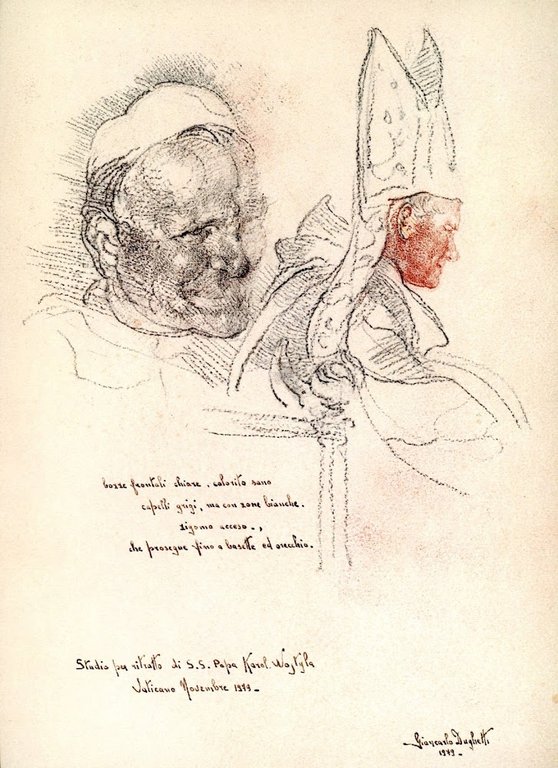 bozze frontali chiare, colorito sano
capelli grigi, ma con zone bianche.
zigomo acceso..,
che prosegue fino a basette ed orecchio.
Studio per ritratto di S.S. Papa Karol Wojtyla
Vaticano Novembre 1979_
Giancarlo Dughetti
1979_